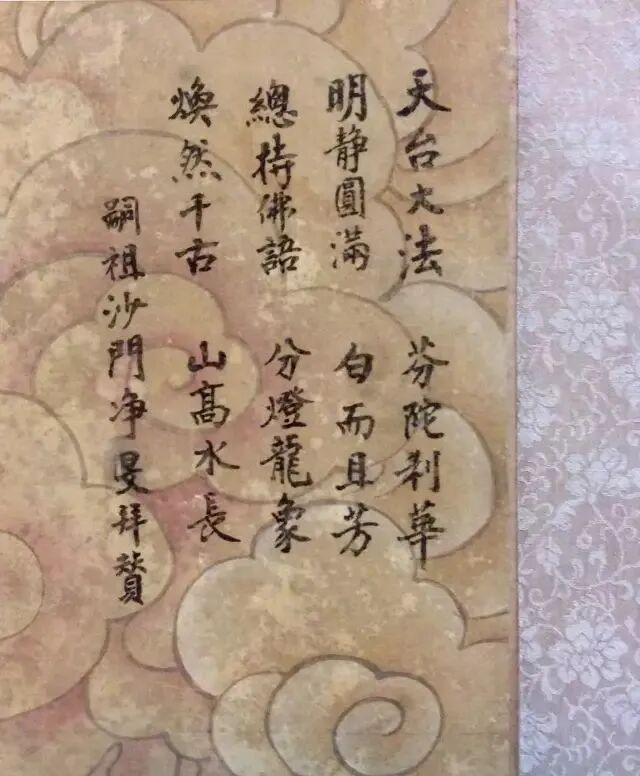 天台大法 芬陀利華
明静圓滿 白而且芳
總持佛語 分燈龍象
煥然千古 山高水長
嗣祖沙門净旻拜贊